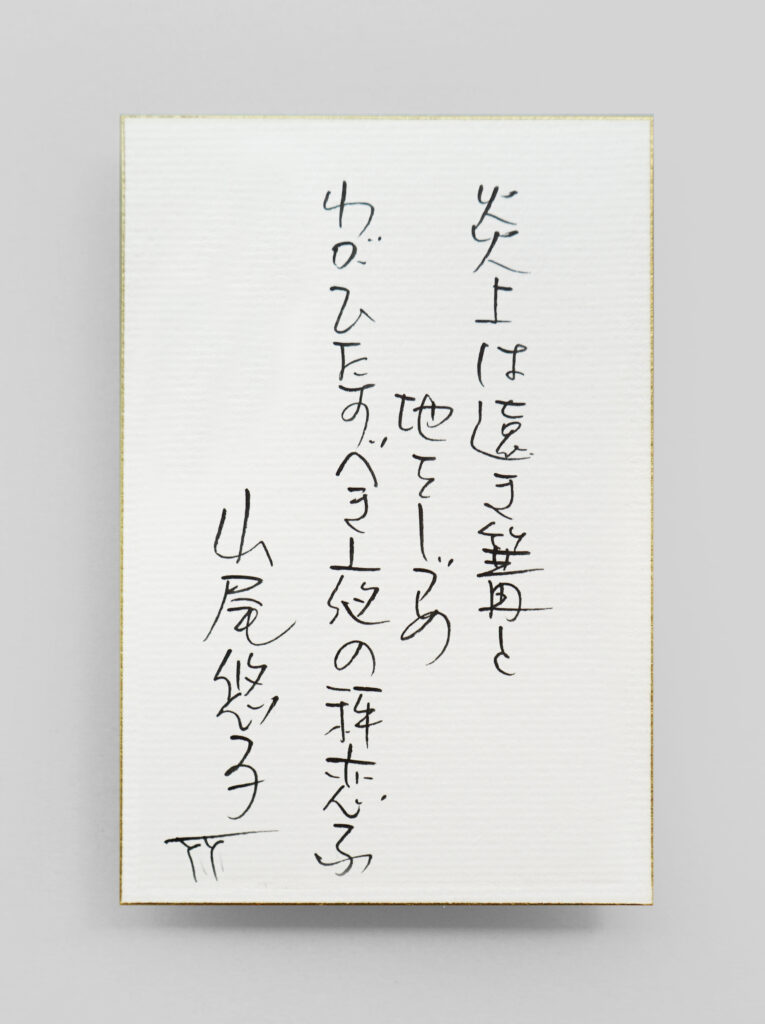 炎上は遠き篝と
地をしづめ
わがひたすべき夜の恋ふ
山尾悠子